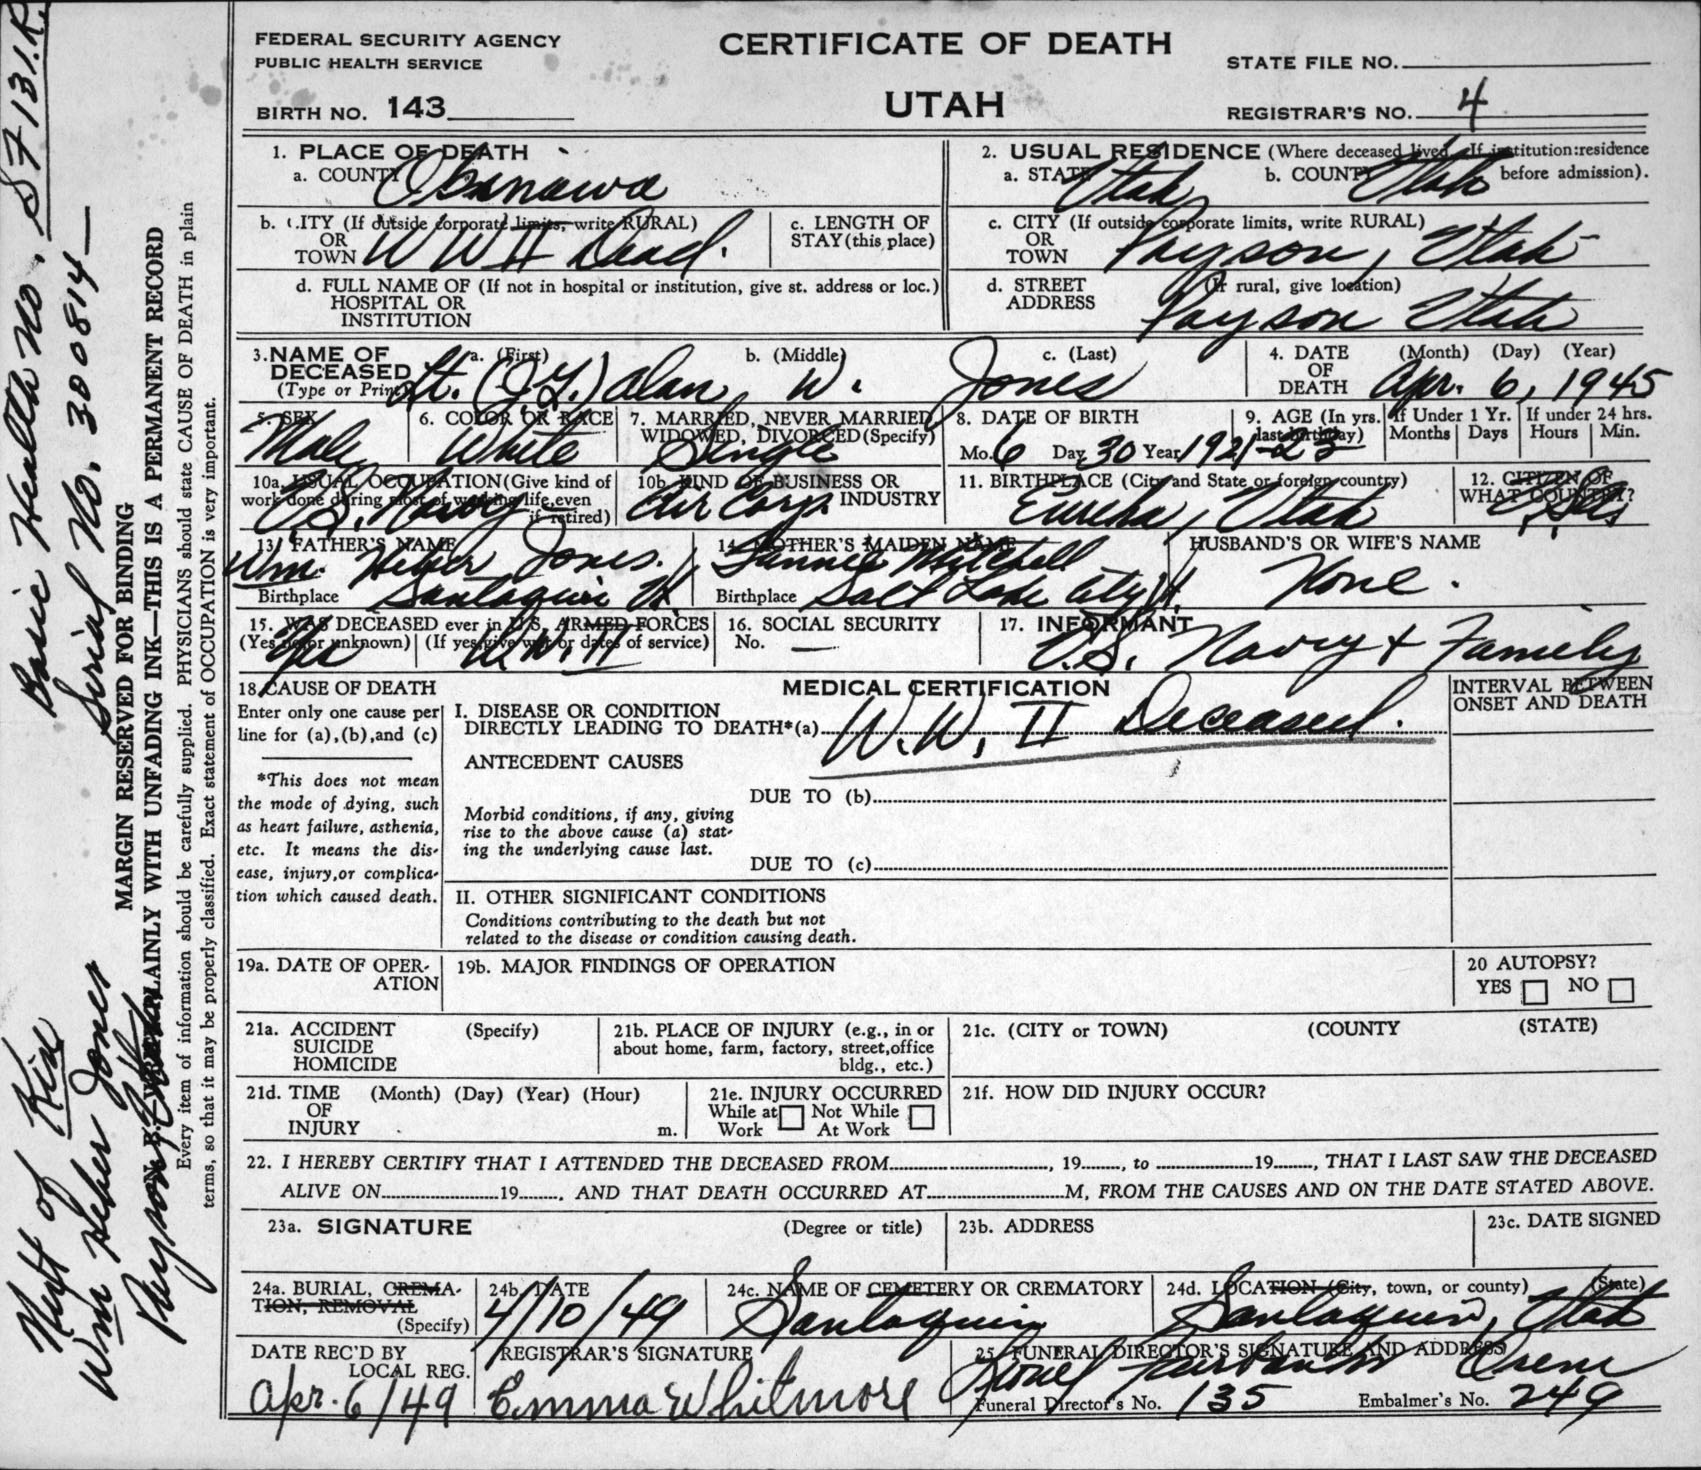 FEDERAL SECURITY AGENCY
PUBLIC HEALTH SERVICE
CERTIFICATE OF DEATH
STATE FILE NO.
BIRTH NO. 143
UTAH
REGISTRAR'S NO. 4
1. PLACE OF DEATH
a. COUNTY Okinawa
2. USUAL RESIDENCE (Where deceased lived. If institution:residence before admission).
a. STATE Utah b. COUNTY Utah
b. CITY (If outside corporate limits, write RURAL)
OR
TOWN WW II Dead.
c. LENGTH OF
STAY (this place)
c. CITY (If outside corporate limits, write RURAL)
OR
TOWN Payson, Utah
d. FULL NAME OF (If not in hospital or institution, give st. address or loc.)
HOSPITAL OR
INSTITUTION
d. STREET (If rural, give location)
ADDRESS Payson Utah
3. NAME OF DECEASED
(Type or Print)
a. (First) b. (Middle) c. (Last)
Lt. (J.G.) Alan W. Jones
4. DATE OF DEATH (Month) (Day) (Year)
Apr. 6, 1945
5. SEX
Male
6. COLOR OR RACE
White
7. MARRIED, NEVER MARRIED
WIDOWED, DIVORCED (Specify)
Single
8. DATE OF BIRTH
Mo. 6 Day 30 Year 1921
9. AGE (In yrs. last birthday)
23
If Under 1 Yr.
Months Days
If under 24 hrs.
Hours Min.
10a. USUAL OCCUPATION (Give kind of work done during most of working life, even if retired)
U.S. Navy
10b. KIND OF BUSINESS OR INDUSTRY
Air Corps
11. BIRTHPLACE (City and State or foreign country)
Eureka, Utah
12. CITIZEN OF
WHAT COUNTRY?
13. FATHER'S NAME
Wm. Heber Jones.
Birthplace Santaquin Ut.
14. MOTHER'S MAIDEN NAME
Fannie Mitchell
Birthplace Salt Lake City Ut.
HUSBAND'S OR WIFE'S NAME
None.
15. WAS DECEASED ever in U.S. ARMED FORCES
(Yes no or unknown) (If yes give war or dates of service)
Yes W.W. II
16. SOCIAL SECURITY
No. —
17. INFORMANT
U.S. Navy + Family
18. CAUSE OF DEATH
Enter only one cause per
line for (a),(b),and (c)
*This does not mean
the mode of dying, such
as heart failure, asthenia,
etc. It means the dis-
ease, injury,or complica-
tion which caused death.
MEDICAL CERTIFICATION
I. DISEASE OR CONDITION
DIRECTLY LEADING TO DEATH*(a) W.W. II Deceased.
INTERVAL BETWEEN
ONSET AND DEATH
ANTECEDENT CAUSES
DUE TO (b)
Morbid conditions, if any, giving
rise to the above cause (a) stat-
ing the underlying cause last.
DUE TO (c)
II. OTHER SIGNIFICANT CONDITIONS
Conditions contributing to the death but not
related to the disease or condition causing death.
19a. DATE OF OPER-
ATION
19b. MAJOR FINDINGS OF OPERATION
20 AUTOPSY?
YES NO
21a. ACCIDENT (Specify)
SUICIDE
HOMICIDE
21b. PLACE OF INJURY (e.g., in or
about home, farm, factory, street,office
bldg., etc.)
21c. (CITY or TOWN) (COUNTY (STATE)
21d. TIME (Month) (Day) (Year) (Hour)
OF
INJURY m.
21e. INJURY OCCURRED
While at Work Not While At Work
21f. HOW DID INJURY OCCUR?
22. I HEREBY CERTIFY THAT I ATTENDED THE DECEASED FROM , 19 , to 19 , THAT I LAST SAW THE DECEASED
ALIVE ON 19 , AND THAT DEATH OCCURRED AT M, FROM THE CAUSES AND ON THE DATE STATED ABOVE.
23a. SIGNATURE (Degree or title)
23b. ADDRESS
23c. DATE SIGNED
24a. BURIAL, CREMA-
TION, REMOVAL
(Specify)
24b. DATE
4/10/49
24c. NAME OF CEMETERY OR CREMATORY
Santaquin
24d. LOCATION (City, town, or county) (State)
Santaquin, Utah
DATE REC'D BY
LOCAL REG.
Apr. 6/49
REGISTRAR'S SIGNATURE
Emma Whitmore
25. FUNERAL DIRECTOR'S SIGNATURE AND ADDRESS
Fairbanks Orem
Funeral Director's No. 135 Embalmer's No. 249
Basic Health No. S7131.R.
Serial No. 300814—
MARGIN RESERVED FOR BINDING
WRITE PLAINLY WITH UNFADING INK—THIS IS A PERMANENT RECORD
Every item of information should be carefully supplied. PHYSICIANS should state CAUSE OF DEATH in plain
terms, so that it may be properly classified. Exact statement of OCCUPATION is very important.
Next of Kin
Wm Heber Jones
Payson, Utah